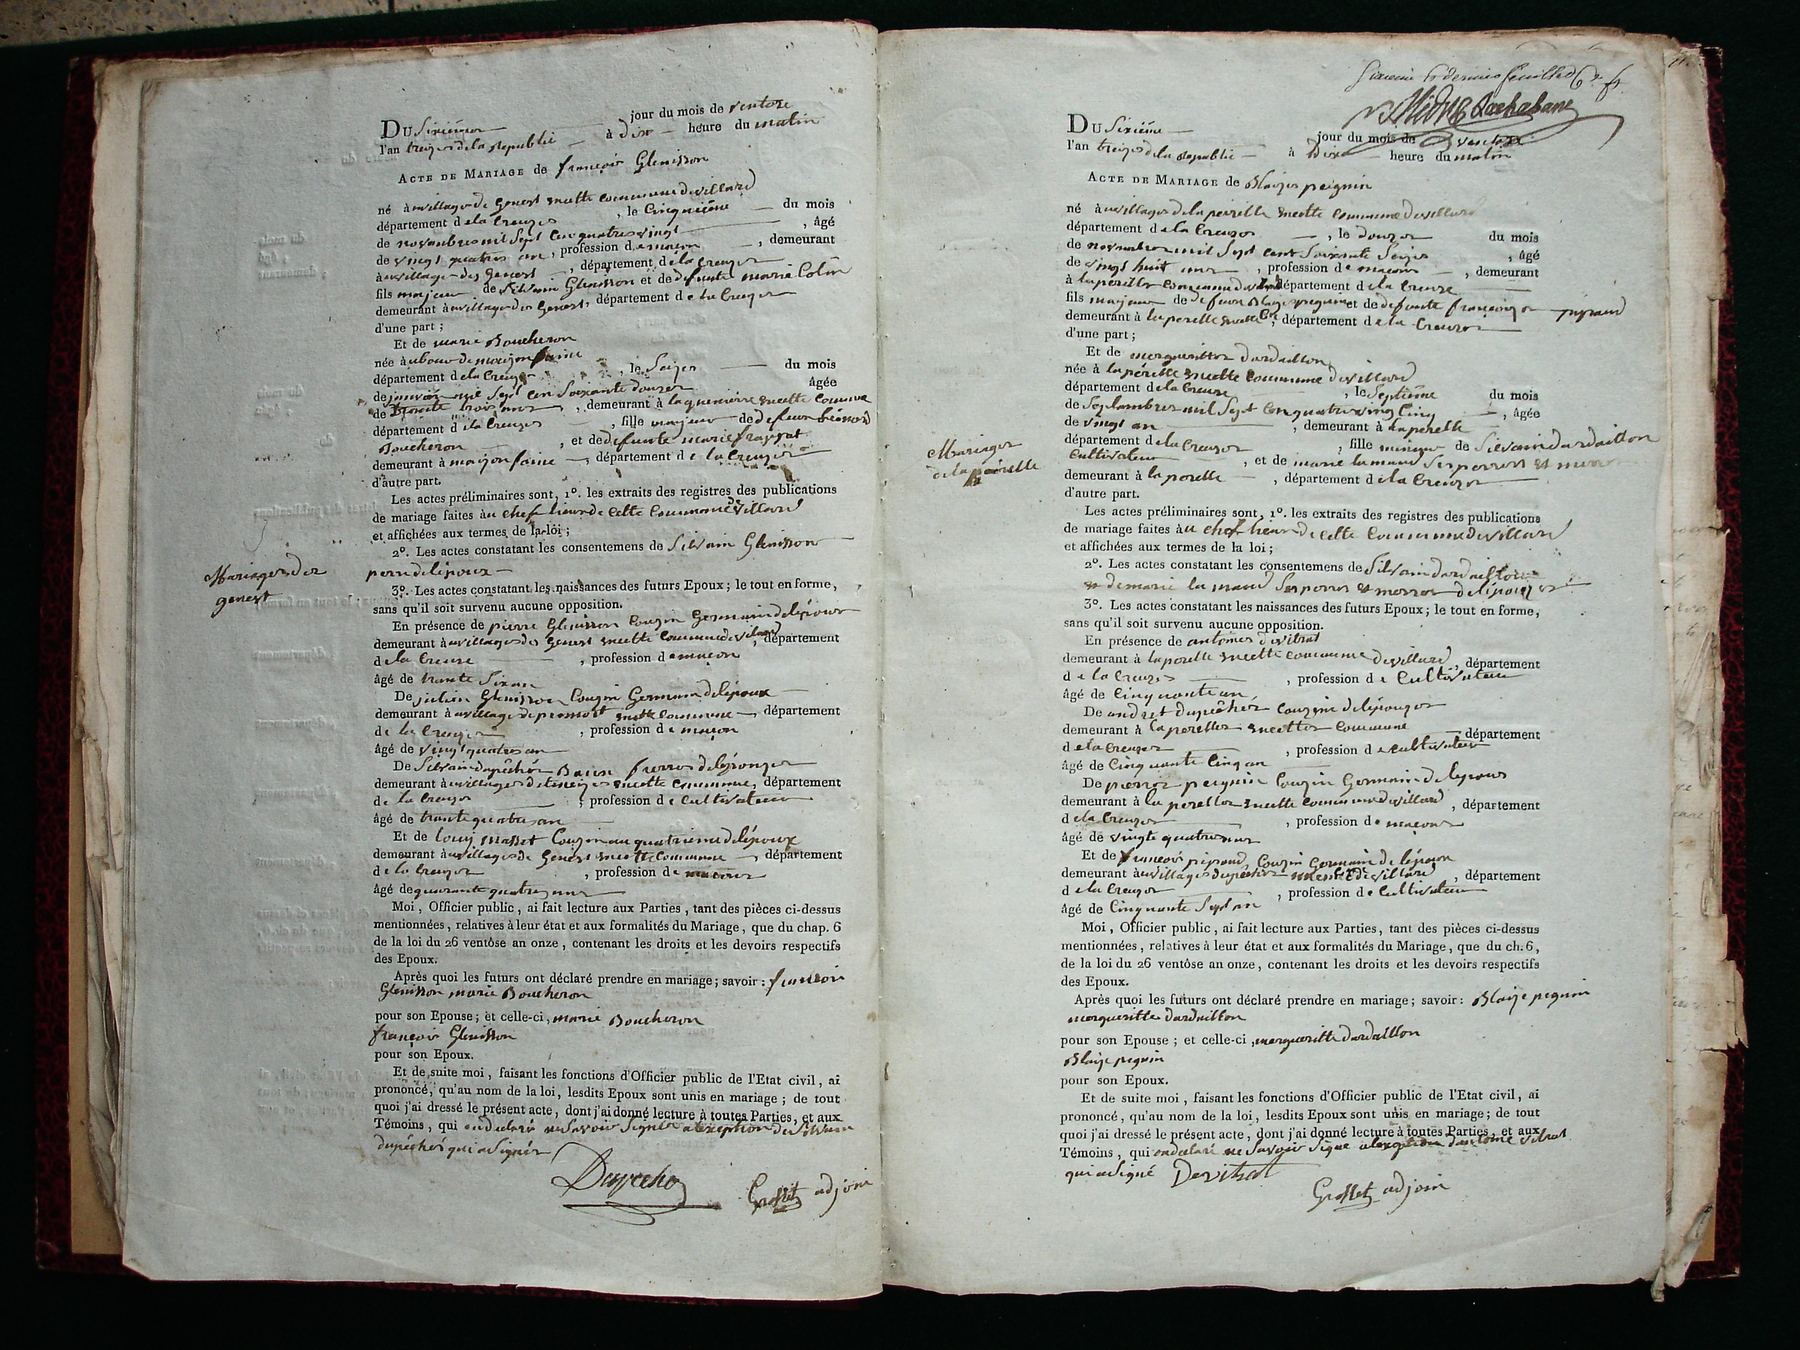 DU Sixième jour du mois de ventose
l'an treize de la Republie à Dix heure du matin
ACTE DE MARIAGE de françois Glenisson
né à village de Genest en cette commune de villard
département de la Creuze, le Cinquième du mois
de novambre mil Sept Cen quatre vingt, âgé
de vingt quatre an, profession de maçon, demeurant
à village des Genest, département de la Creuze
fils majeur de Silvain Glenisson et de defunte marie Colin
demeurant à village des Genest, département de la Creuze
d'une part ;
Et de marie Boucheron
née à bour de maizon faine
département de la Creuze, le Seize du mois
de janvier mil Sept Cen Soixante douze âgée
de trante trois ans, demeurant à la en cette commune
département de la Creuze, fille majeur de defeun
Boucheron, et de defunte marie frapat
demeurant à maizon faine, département de la Creuze
d'autre part.
Les actes préliminaires sont, 1°. les extraits des registres des publications
de mariage faites au chef lieux de cette Commune de villard
et affichées aux termes de la loi ;
2°. Les actes constatant les consentemens de Silvain Glenisson
perre de lépoux
3°. Les actes constatant les naissances des futurs Epoux ; le tout en forme,
sans qu'il soit survenu aucune opposition.
En présence de pierre Glenisson Couzin Germain de lépoux
demeurant à village des Genest en cette commune de vilard, département
de la Creuse, profession de maçon
âgé de trante Six an
De julien Glenisson Couzin Germain de lépoux
demeurant à village de premost en cette commune, département
de la Creuze, profession de maçon
âgé de vingt quatre an
De Silvain dupêcher Baux frerre de lépouze
demeurant à village en cette commune, département
de la Creuze, profession de Cultivateur
âgé de trante quatre an
Et de Louy masset Couzin au quatrieme de lépoux
demeurant à village de Genest en cette Commune, département
de la Creuze, profession de macon
âgé de quarante quatre ans
Moi, Officier public, ai fait lecture aux Parties, tant des pièces ci-dessus
mentionnées, relatives à leur état et aux formalités du Mariage, que du chap. 6
de la loi du 26 ventôse an onze, contenant les droits et les devoirs respectifs
des Epoux.
Après quoi les futurs ont déclaré prendre en mariage ; savoir : françois
Glenisson marie Boucheron
pour son Epouse ; et celle-ci, marie Boucheron
françois Glenisson
pour son Epoux.
Et de suite moi, faisant les fonctions d'Officier public de l'Etat civil, ai
prononcé, qu'au nom de la loi, lesdits Epoux sont unis en mariage ; de tout
quoi j'ai dressé le présent acte, dont j'ai donné lecture à toutes Parties, et aux
Témoins, qui on declaré ne Savoir Signer a lexeption de Silvain
dupécher qui a Signér
Dupecher Grosset adjoin
Mariage de
genest
Sixieme et dernier feuillet
DU Sixième jour du mois de ventose
l'an treize de la Republie à Dix heure du matin
ACTE DE MARIAGE de Blaize peignin
né à village de la poirelle en cette commune de villard
département de la Creuze, le douze du mois
de novambre mil Sept Cent Soixante Seize, âgé
de vingt huit ans, profession de maçon, demeurant
à la perelle commune de villard département de la Creuse
fils majeur de defeun Blaize peignin et de defunte françoize pigraud
demeurant à la perelle en cette Cne, département de la Creuze
d'une part ;
Et de margueritte dardaillon
née à la pérelle en cette commune de villard
département de la Creuze, le Septième du mois
de Septambre mil Sept Cen quatre ving Cinq, âgée
de vingt an, demeurant à la perelle
département de la Creuze, fille mineur de Silvain dardaillon
Cultivateur, et de marie lamaud Ses perre et merre
demeurant à la perelle, département de la Creuze
d'autre part.
Les actes préliminaires sont, 1°. les extraits des registres des publications
de mariage faites au chef lieux de cette Commune de villard
et affichées aux termes de la loi ;
2°. Les actes constatant les consentemens de Silvain dardaillon
et de marie la maud Ses perre et merre de lépouze
3°. Les actes constatant les naissances des futurs Epoux ; le tout en forme,
sans qu'il soit survenu aucune opposition.
En présence de antoines devitrat
demeurant à la perelle en cette commune de villard, département
de la Creuze, profession de Cultivateur
âgé de Cinquante an
De andret dupêcher Couzin de lépouze
demeurant à la perelle en cette commune département
de la Creuze, profession de cultivateur
âgé de Cinquante Cinq an
De pierre peignin Couzin Germain de lépoux
demeurant à la perelle en cette commune de villard, département
de la Creuze, profession de maçon
âgé de vingte quatre ans
Et de francois pigraud Couzin Germain de lépoux
demeurant à village de villard, département
de la Creuze, profession de Cultivateur
âgé de Cinquante Sept an
Moi, Officier public, ai fait lecture aux Parties, tant des pièces ci-dessus
mentionnées, relatives à leur état et aux formalités du Mariage, que du ch. 6,
de la loi du 26 ventôse an onze, contenant les droits et les devoirs respectifs
des Epoux.
Après quoi les futurs ont déclaré prendre en mariage ; savoir : Blaize peignin
margueritte dardaillon
pour son Epouse ; et celle-ci, margueritte dardaillon
Blaize peignin
pour son Epoux.
Et de suite moi, faisant les fonctions d'Officier public de l'Etat civil, ai
prononcé, qu'au nom de la loi, lesdits Epoux sont unis en mariage ; de tout
quoi j'ai dressé le présent acte, dont j'ai donné lecture à toutes Parties, et aux
Témoins, qui on declaré ne Savoir Signe a lexeption dantoine vitrat
qui a Signé Devitrat
Grosset adjoin
Mariage
de la poirelle